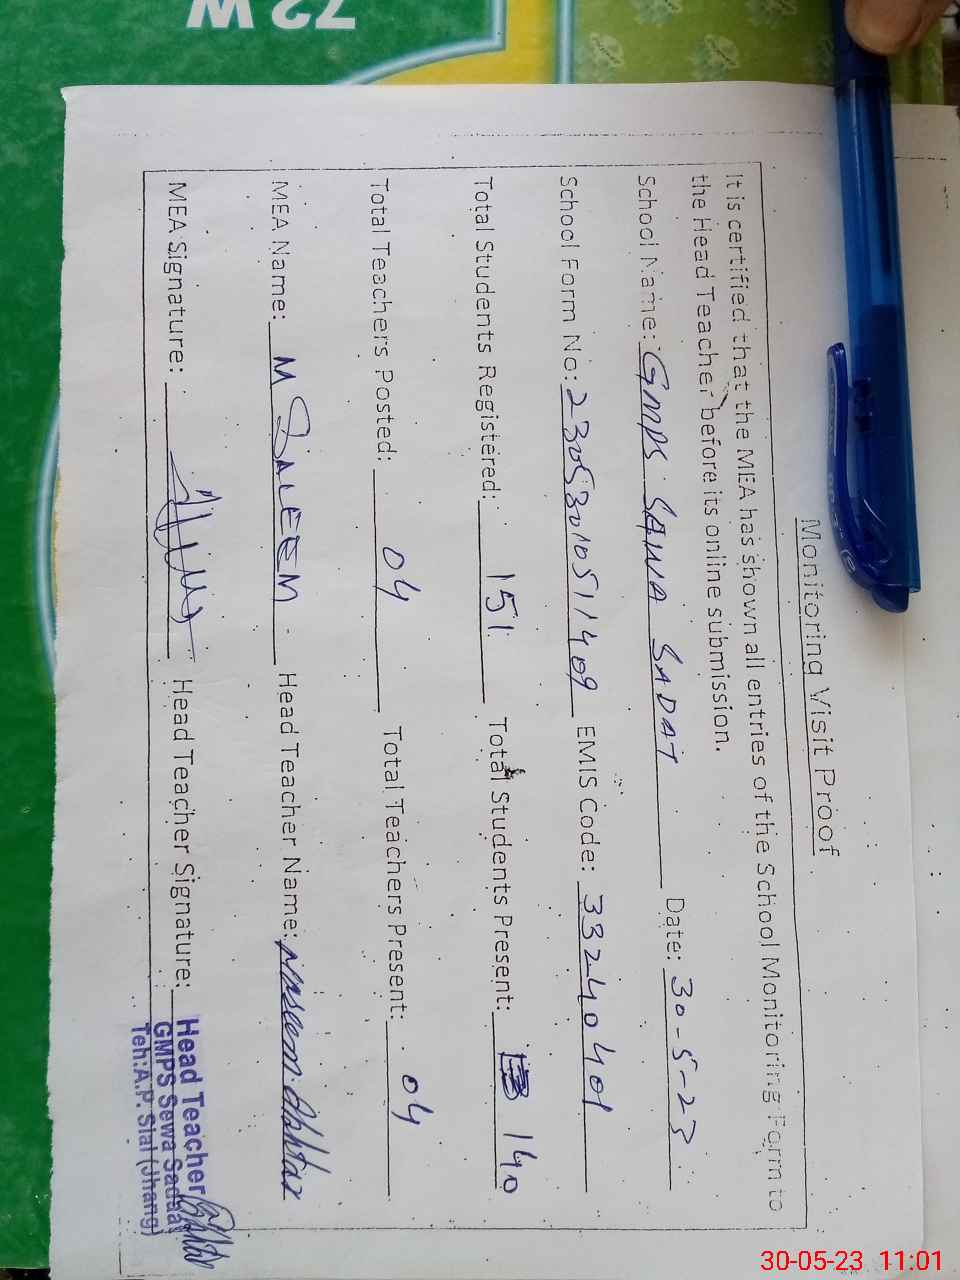 72 W
Monitoring Visit Proof
It is certified that the MEA has shown all entries of the School Monitoring Form to
the Head Teacher before its online submission.
School Name: GMPS SAWA SADAT Date: 30-5-23
School Form No: 23053010511409 EMIS Code: 33240401
Total Students Registered: 151 Total Students Present: 140
Total Teachers Posted: 04 Total Teachers Present: 04
MEA Name: M SALEEM Head Teacher Name: Naseem Akhtar
MEA Signature: Head Teacher Signature:
Head Teacher
GMPS Sewa Sadaat
Teh:A.P. Sial (Jhang)
30-05-23 11:01